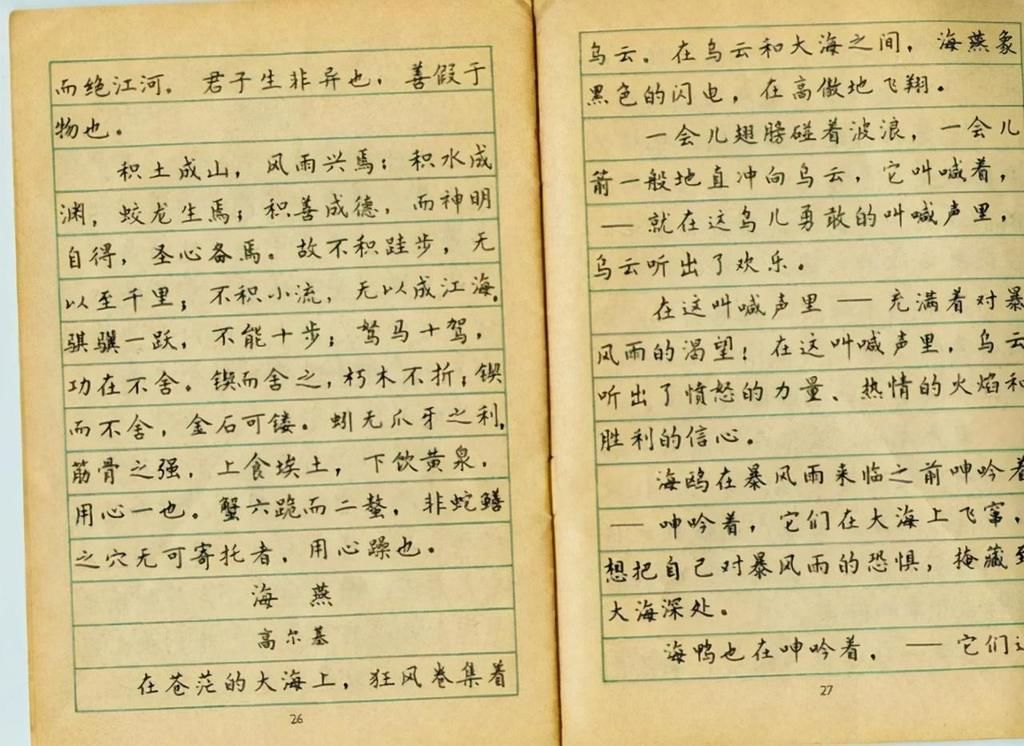 而绝江河。君子生非异也，善假于
物也。
积土成山，风雨兴焉；积水成
渊，蛟龙生焉；积善成德，而神明
自得，圣心备焉。故不积跬步，无
以至千里；不积小流，无以成江海。
骐骥一跃，不能十步；驽马十驾，
功在不舍。锲而舍之，朽木不折；锲
而不舍，金石可镂。蚓无爪牙之利，
筋骨之强，上食埃土，下饮黄泉，
用心一也。蟹六跪而二螯，非蛇鳝
之穴无可寄托者，用心躁也。
海燕
高尔基
在苍茫的大海上，狂风卷集着
26
乌云。在乌云和大海之间，海燕象
黑色的闪电，在高傲地飞翔。
一会儿翅膀碰着波浪，一会儿
箭一般地直冲向乌云，它叫喊着，
—就在这鸟儿勇敢的叫喊声里，
乌云听出了欢乐。
在这叫喊声里—充满着对暴
风雨的渴望！在这叫喊声里，乌云
听出了愤怒的力量、热情的火焰和
胜利的信心。
海鸥在暴风雨来临之前呻吟着
—呻吟着，它们在大海上飞窜，
想把自己对暴风雨的恐惧，掩藏到
大海深处。
海鸭也在呻吟着，—它们这
27